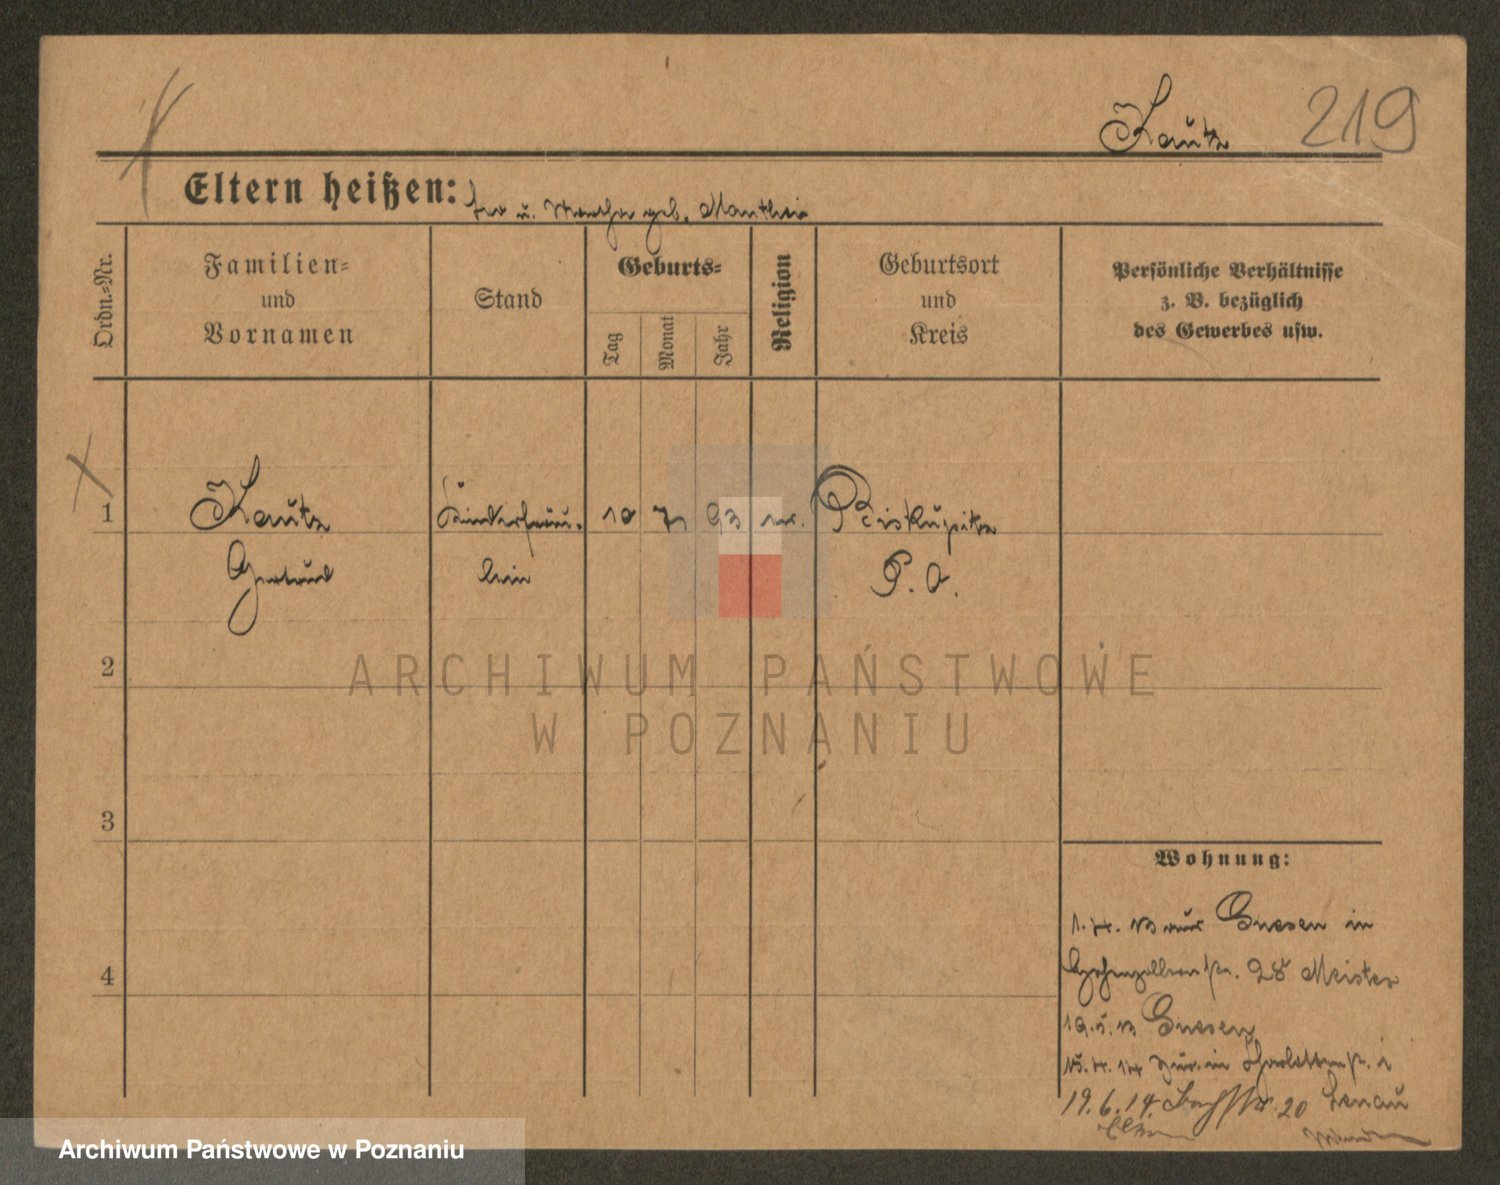 Kautz 219
Eltern heißen: u. Martha geb. Manthei
Ordn.-Nr.
Familien-
und
Vornamen
Stand
Geburts-
Tag
Monat
Jahr
Religion
Geburtsort
und
Kreis
Persönliche Verhältnisse
z. B. bezüglich
des Gewerbes usw.
1 Kautz Kinderfräu- 10 7 93 ev. Biskupitz
Gertrud lein P. O.
2
3
4
Wohnung:
1.4.13 aus Gnesen in
Hohenzollernstr. 28 Meister
19.5.13 Gnesen
15.4.14 zur. in
19.6.14. 20 Lenau
ARCHIWUM PAŃSTWOWE
W POZNANIU
Archiwum Państwowe w Poznaniu